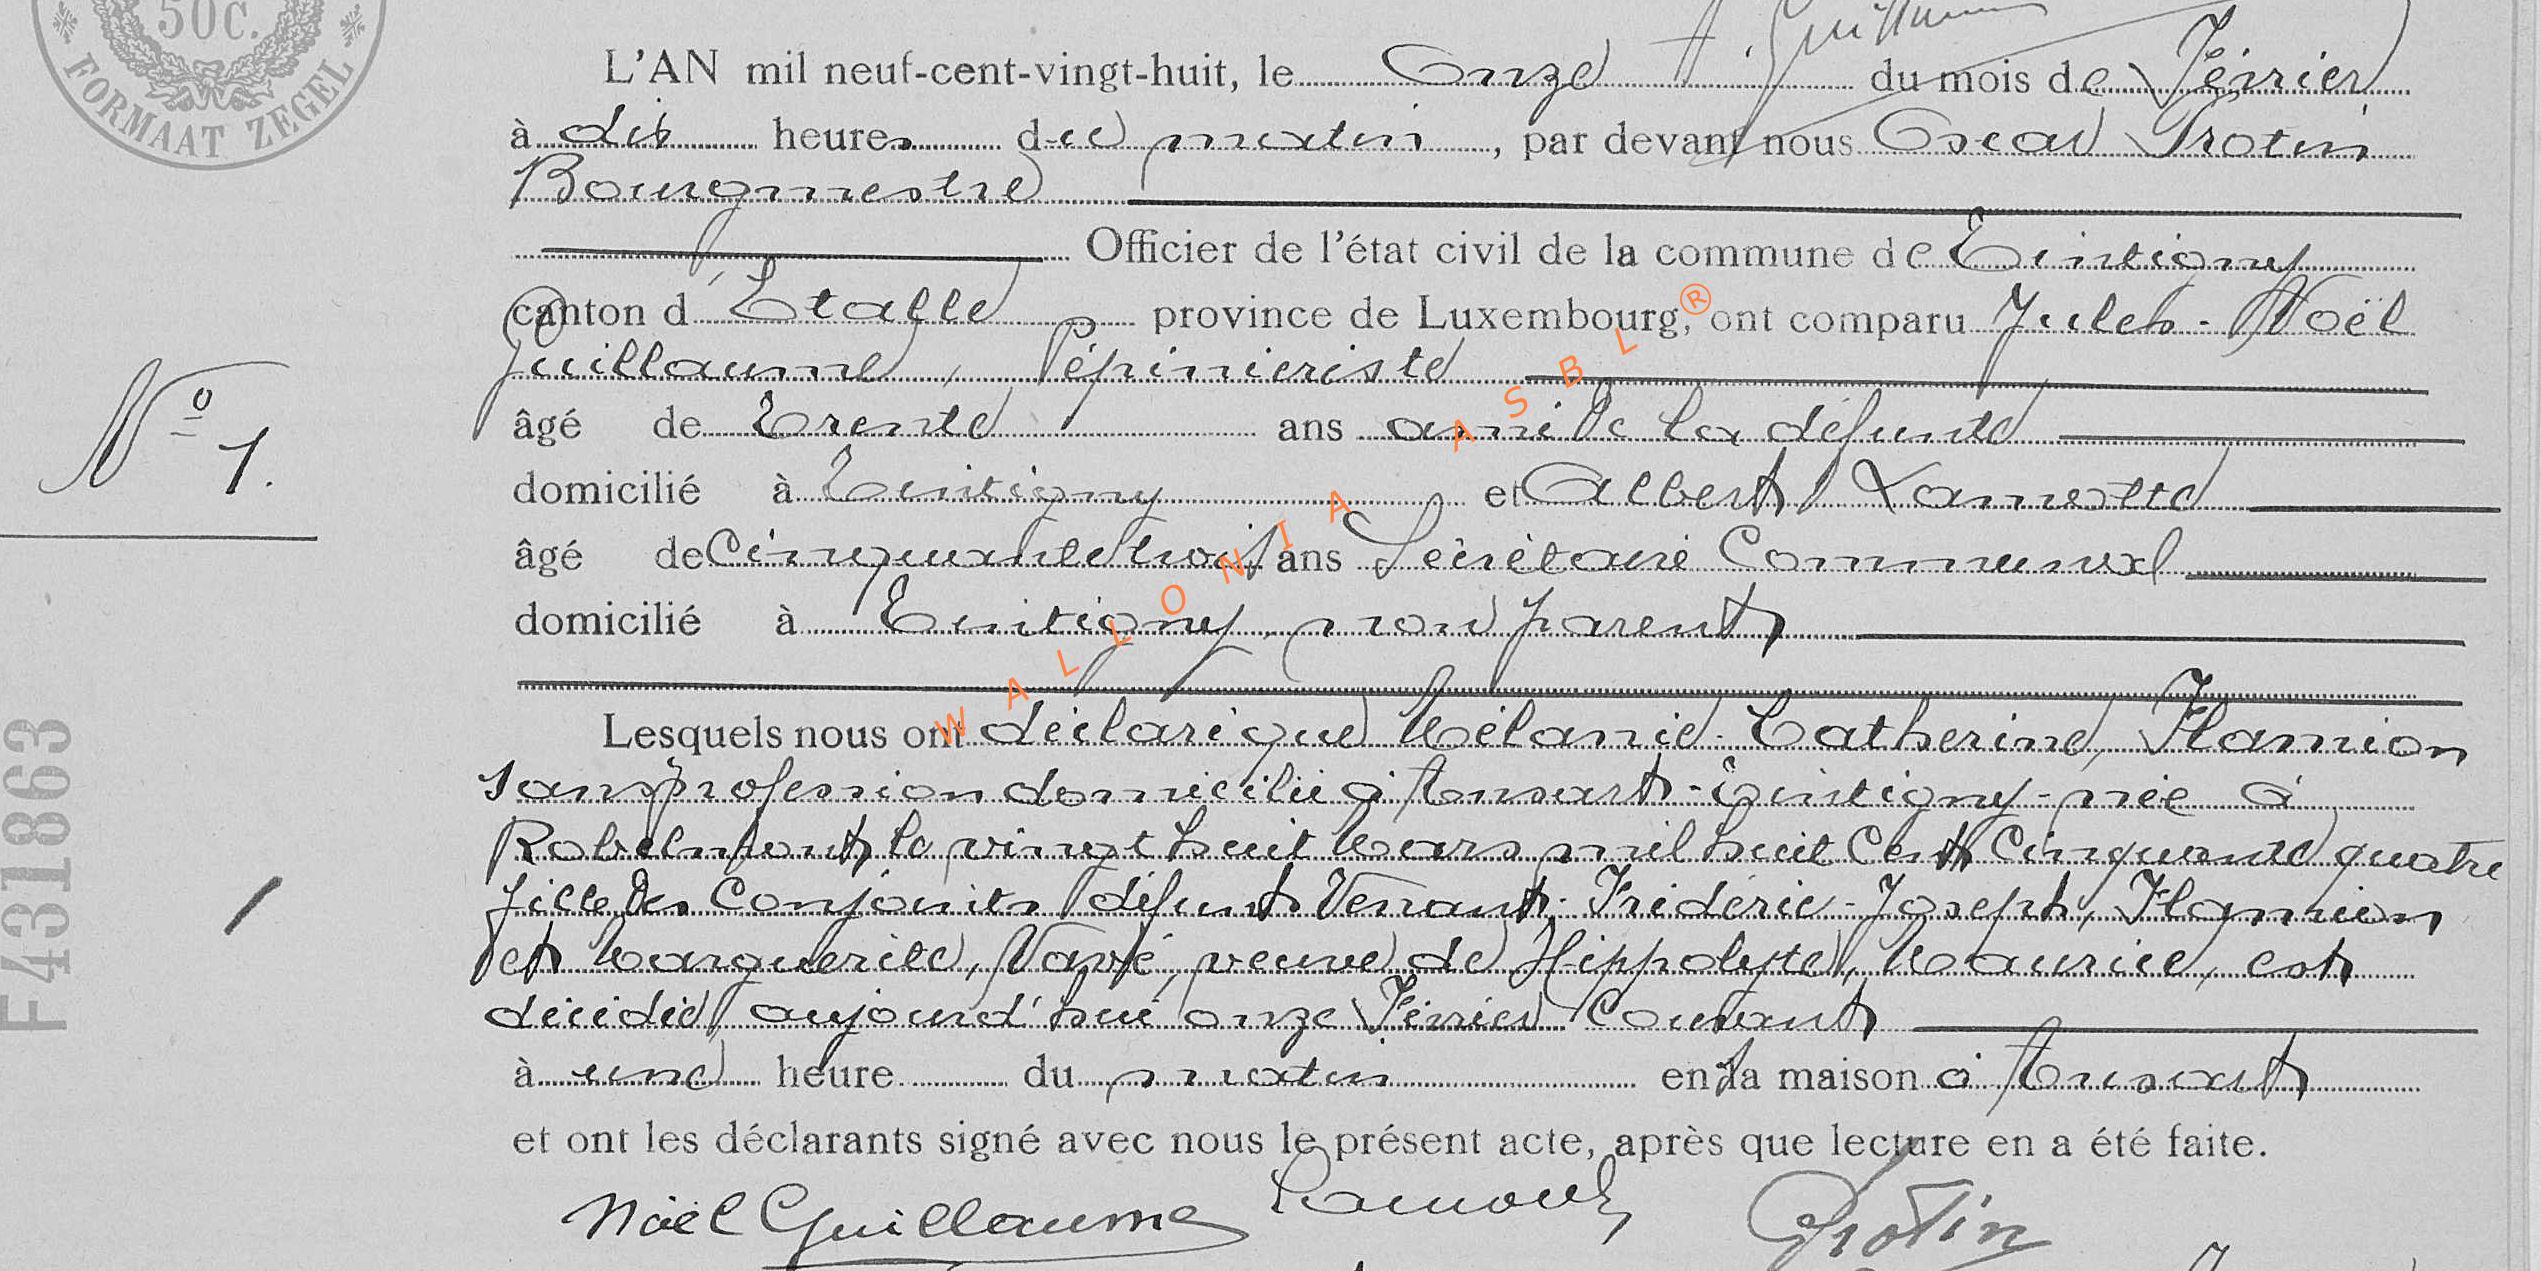 50C.
FORMAAT ZEGEL
Guillaume
L'AN mil neuf-cent-vingt-huit, le Onze du mois de Février
à dix heures du matin, par devant nous Oscar Protin
Bourgmestre
Officier de l'état civil de la commune de Tintigny
canton d'Etalle province de Luxembourg, ont comparu Jules-Noël
Guillaume, Pépinieriste
âgé de Trente ans ami de la défunte
domicilié à Tintigny et Albert Lamotte
âgé de Cinquante trois ans Secrétaire Communal
N° 1.
domicilié à Tintigny, non parent
Lesquels nous ont déclaré que Mélanie-Catherine, Flamion
sans profession domiciliée à Ansart-Tintigny-née à
Robelmont le vingt huit Mars mil huit Cent Cinquante quatre
fille des Conjoints défunts Venant-Frédéric-Joseph, Flamion
et Marguerite, Navé, veuve de Hippolyte, Maurice, est
décédée aujourd'hui onze Février Courant
à une heure du matin en la maison à Ansart
et ont les déclarants signé avec nous le présent acte, après que lecture en a été faite.
Noël Guillaume Lamotte Protin
F431863
WALLONIA ASBL®